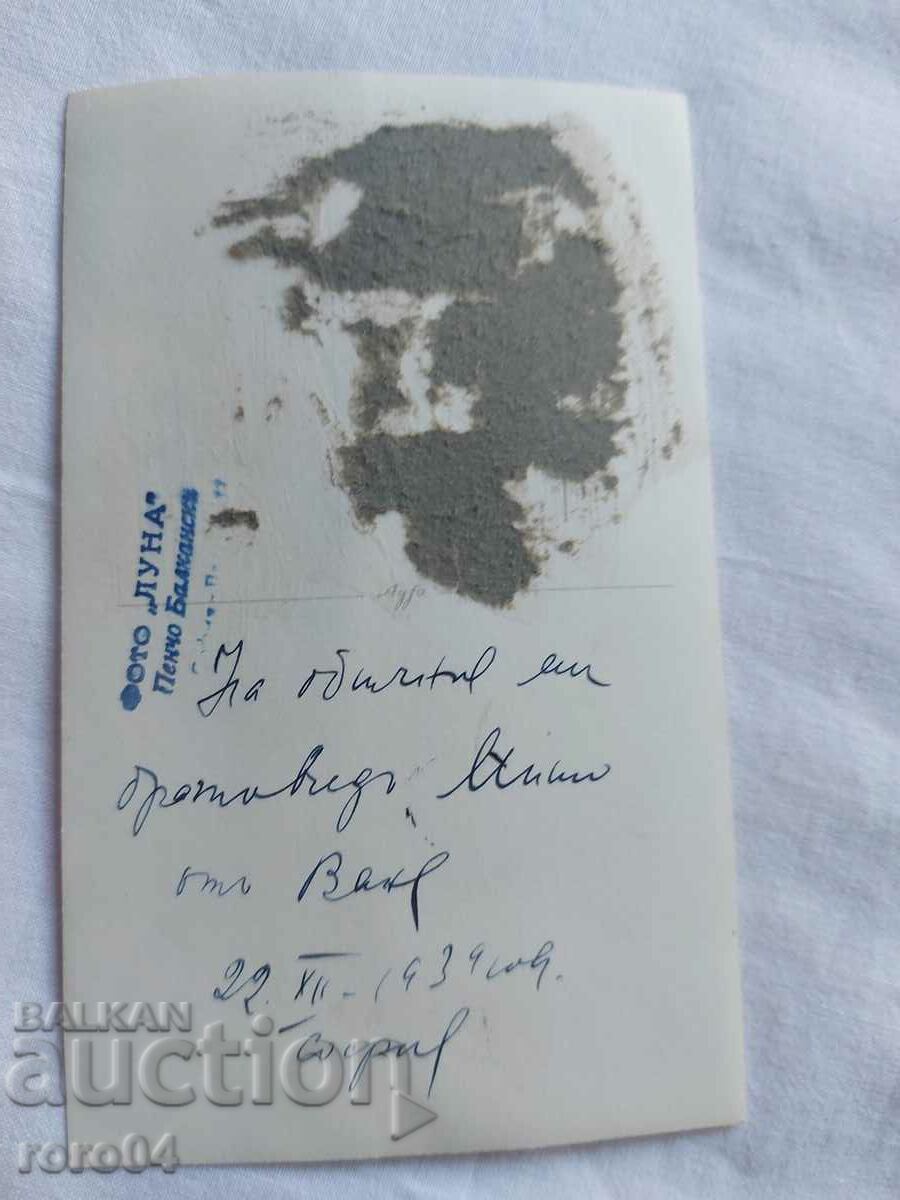 ФОТО „ЛУНА"
Пенчо Балкански
На обичния ми
братовчедъ Мишо
отъ Ваня
22. XII - 1939 год.
София
BALKAN
auction
roro04